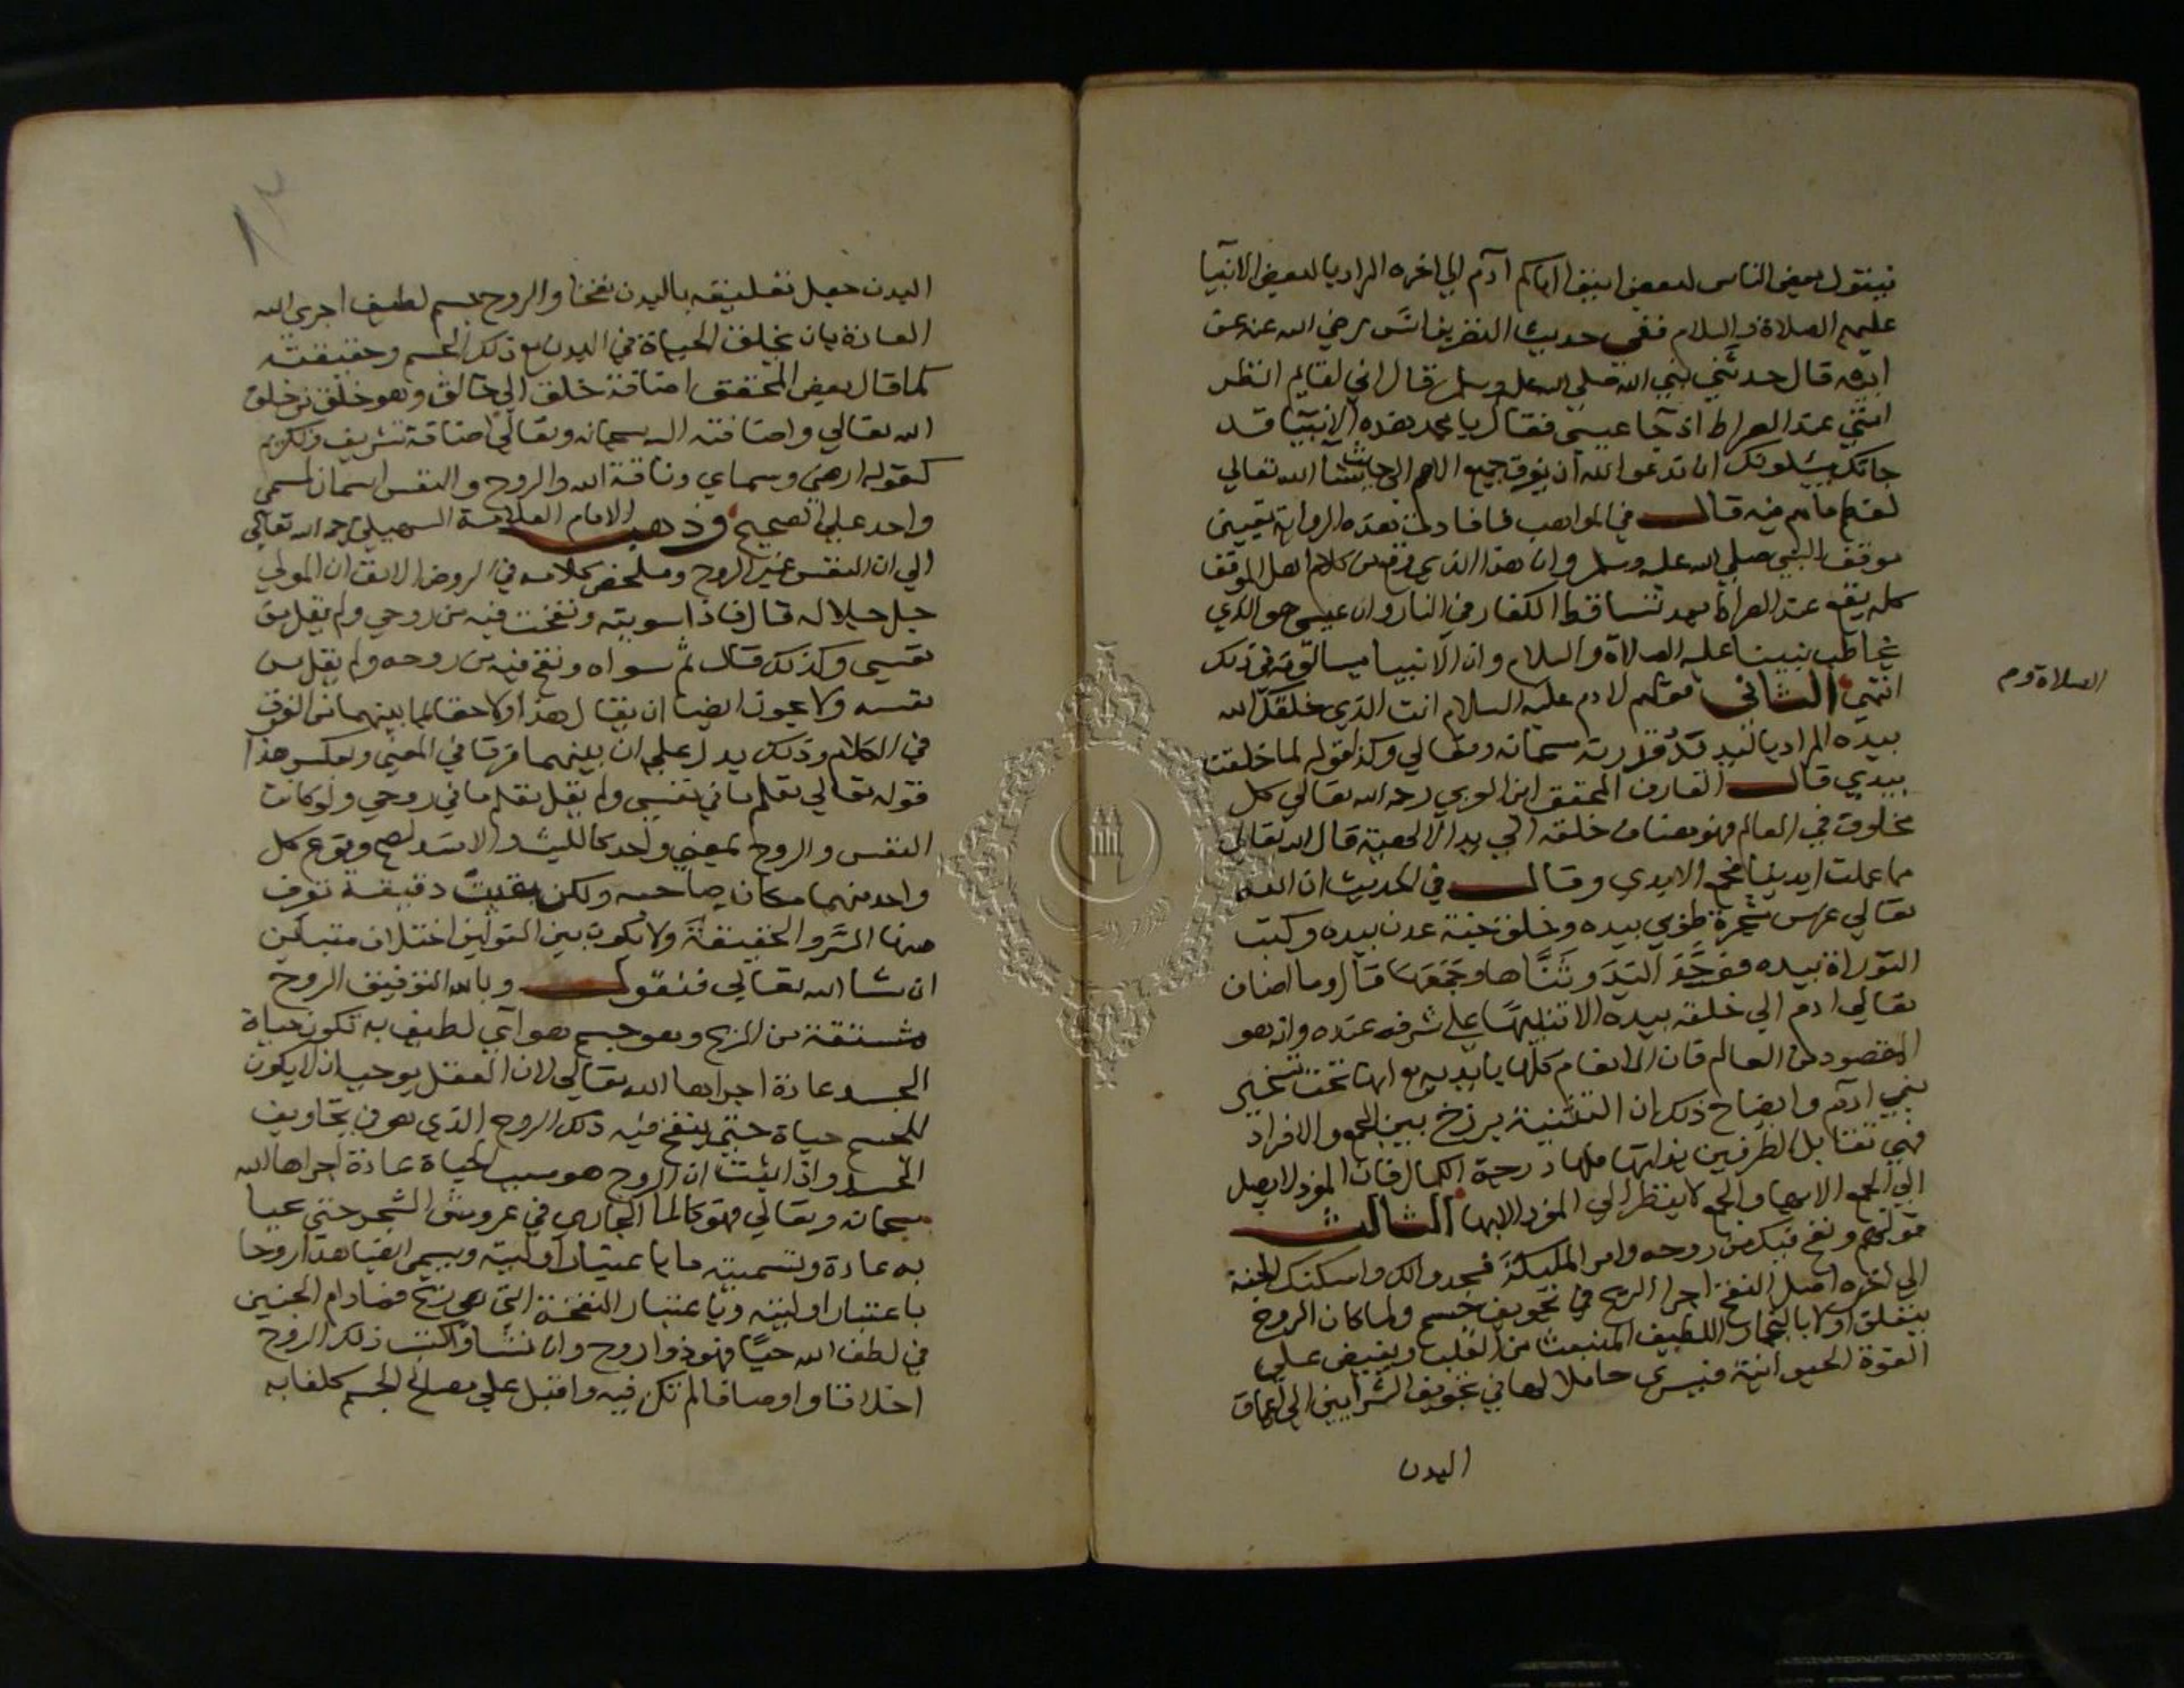 فيقول بعض الناس لبعض ايتوا اباكم ادم الي اخره المراد بالبعض الانبيا
عليهم الصلاة والسلام ففي حديث النضر بن انس رضي الله عنه عن
ابيه قال حدثني نبي الله صلي الله عليه وسلم قال اني لقايم انتظر
امتي عند الصراط اذ جا عيسي فقال يا محمد هذه الانبيا قد
جاتك يسيلونك ان تدعوا الله ان يفرق جميع الامم الي حيث شا الله تعالي
لغم ما هم فيه قال في المواهب فافادت هذه الرواية تعيين
موقف النبي صلي الله عليه وسلم وان هذا الذي وقع من كلام اهل الموقف
كله يقع عند الصراط بعد تساقط الكفار في النار وان عيسي هو الذي
يخاطب نبينا عليه الصلاة والسلام وان الانبيا يسالونه في ذلك
انتهي الثاني قولهم لادم عليه السلام انت الذي خلقك الله
بيده المراد باليد قدرته سبحانه وتعالي وكذا قوله لما خلقت
بيدي قال العارف المحقق ابن العربي رحمه الله تعالي كل
مخلوق في العالم فهو مضاف خلقه الي يد الالهية قال الله تعالي
مما عملت ايدينا فجمع الايدي وقال في الحديث ان الله
تعالي غرس شجرة طوبي بيده وخلق جنة عدن بيده وكتب
التوراة بيده فوحد اليد وثناها وجمعها قال وما اضاف
تعالي ادم الي خلقه بيده الا تنبيها علي شرفه عنده وانه هو
المقصود من العالم فان الانعام كلها بايديه مع انها تحت تسخير
بني ادم وايضاح ذلك ان التثنية برزخ بين الجمع والافراد
فهي تقابل الطرفين بذاتها فلها درجة الكمال فان المفرد لا يصل
الي الجمع الا بها والجمع لا ينظر الي المفرد الا بها الثالث
قولهم ونفخ فيك من روحه وامر الملايكة فسجدوا لك واسكنك الجنة
الي اخره اصل النفخ اجرا الريح في تجويف جسم ولما كان الروح
يتعلق اولا بالبخار اللطيف المنبعث من القلب ويفيض علي
القوة الحيوانية فيسري حاملا لها في تجويف الشرايين الي اعماق
البدن
الصلاة و م
البدن جعل تعليقه بالبدن نفخا والروح جسم لطيف اجري الله
العادة بان يخلق الحياة في البدن مع ذلك الجسم وحقيقته
كما قال بعض المحققين اضافة خلق الي خالق وهو خلق من خلق
الله تعالي واضافته اليه سبحانه وتعالي اضافة تشريف وتكريم
كقوله ارضي وسماي وناقة الله والروح والنفس اسمان لمسمي
واحد علي الصحيح وذهب الامام العلامة السهيلي رحمه الله تعالي
الي ان النفس غير الروح وملخص كلامه في الروض الانف ان المولي
جل جلاله قال فاذا سويته ونفخت فيه من روحي ولم يقل من
نفسي وكذلك قال ثم سواه ونفخ فيه من روحه ولم يقل من
نفسه ولا يجوز ايضا ان يقال هذا ولا خفا لما بينهما من الفرق
في الكلام وذلك يدل علي ان بينهما فرقا في المعني وبعكس هذا
قوله تعالي تعلم ما في نفسي ولم يقل تعلم ما في روحي ولو كانت
النفس والروح بمعني واحد كالليث والاسد لصح وقوع كل
واحد منهما مكان صاحبه ولكن بقيت دقيقة تعرف
منها السر والحقيقة ولا يكون بين القولين اختلاف متباين
ان شا الله تعالي فنقول وبالله التوفيق الروح
مشتقة من الريح وهو جسم هوآي لطيف به تكون حياة
الجسد عادة اجراها الله تعالي لان العقل يوجب ان لا يكون
للجسم حياة حتي ينفخ فيه ذلك الروح الذي هو في تجاويف
الجسد واذا ثبت ان الروح هو سبب الحياة عادة اجراها الله
سبحانه وتعالي فهو كالما الجاري في عروش الشجر حتي تحيا
به عادة وتسميته ما باعتبار اوليته ويسمي ايضا هذا روحا
باعتبار اوليته وباعتبار النفخة التي هي ريح فما دام الجنين
في لطف الله حيا فهو ذو روح وان نشا واكتسب ذلك الروح
اخلاقا واوصافا لم تكن فيه واقبل علي مصالح الجسم كلفا به